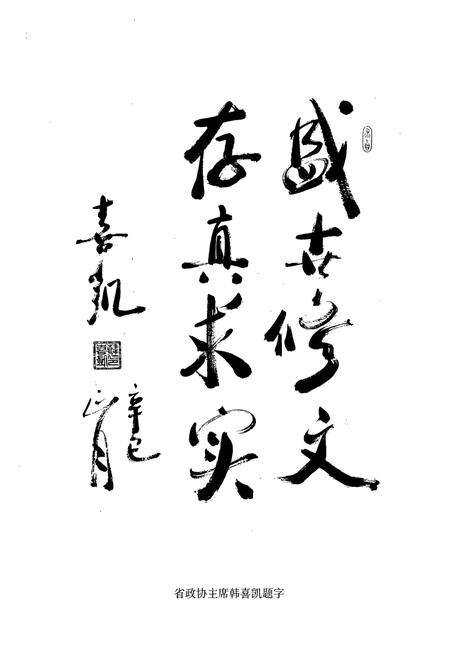 盛世修文
存真求实
喜凯
辛巳
正月
省政协主席韩喜凯题字